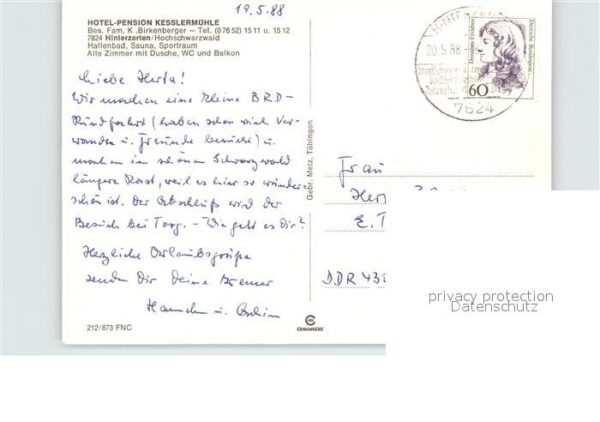 19.5.88
HOTEL-PENSION KESSLERMÜHLE
Bes. Fam. K. Birkenberger – Tel. (0 76 52) 15 11 u. 15 12
7824 Hinterzarten/Hochschwarzwald
Hallenbad, Sauna, Sportraum
Alle Zimmer mit Dusche, WC und Balkon
Liebe Herta!
Wir machen eine kleine BRD-
Rundfahrt (haben schon viel Ver-
wandte u. Freunde besucht) u.
machen im schönen Schwarzwald
längere Rast, weil es hier so wunder-
schön ist. Der Abschluß wird der
Besuch bei - Wie geht es Dir?
Herzliche Urlaubsgrüße
senden Dir Deine Bremer
u.
212/873 FNC
Gebr. Metz, Tübingen
20.5.88
7824
60
Deutsche Bundespost
Frau
Her
E. T
DDR 43
privacy protection
Datenschutz